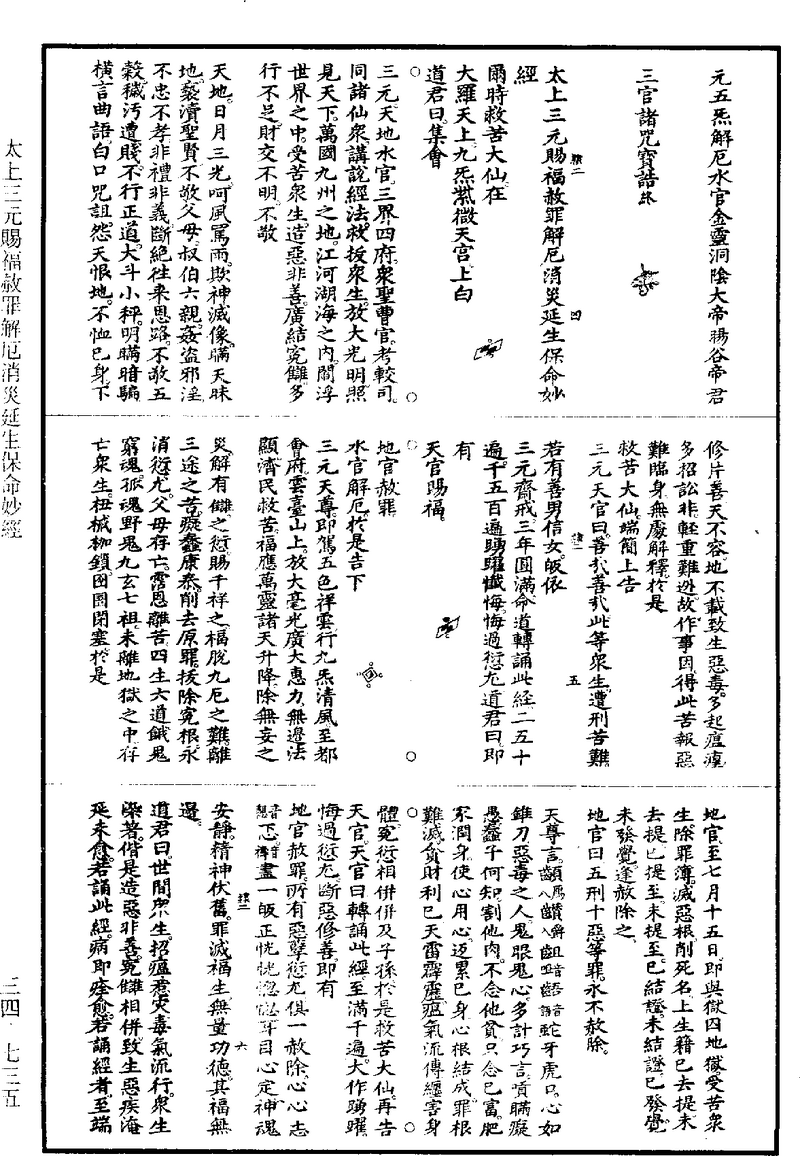 元五炁解厄水官金靈洞陰大帝暘谷帝君
三官諸咒寶誥終
太上三元賜福赦罪解厄消災延生保命妙
經
爾時救苦大仙在
大羅天上九炁紫微天宮上白
道君曰集會
三元天地水官三界四府衆聖曹官考較司
同諸仙衆講說經法救拔衆生放大光明照
見天下萬國九州之地江河湖海之內閻浮
世界之中受苦衆生造惡非善廣結冤讎多
行不足財交不明不敬
天地日月三光呵風罵雨欺神滅像瞞天昧
地褻瀆聖賢不敬父母叔伯六親姦盜邪淫
不忠不孝非禮非義斷絕往來恩路不敬五
穀穢污遭賤不行正道大斗小秤明瞞暗騙
橫言曲語白口咒詛怨天恨地不恤己身下
修片善天不容地不載致生惡毒多起瘟瘴
多招訟非輕重難逃故作事因得此苦報惡
難臨身無處解釋於是
救苦大仙端簡上告
三元天官曰善哉善哉此等衆生遭刑苦難
若有善男信女皈依
三元齋戒三年圓滿命道轉誦此經二五十
遍千五百遍踴躍懺悔悔過愆尤道君曰即
有
天官賜福
地官赦罪
水官解厄於是告下
三元天尊即駕五色祥雲行九炁清風至都
會府雲臺山上放大毫光廣大惠力無邊法
顯濟民救苦福應萬靈諸天升降除無妄之
災解有讎之愆賜千祥之福脫九厄之難離
三途之苦癡蠢康泰削去原罪拔除冤根永
消愆尤父母存亡霑恩離苦四生六道餓鬼
窮魂孤魂野鬼九玄七祖未離地獄之中存
亡衆生杻械枷鎖囹圄閉塞於是
地官至七月十五日即與獄囚地獄受苦衆
生除罪簿滅惡根削死名上生籍已去提未
去提已提至未提至已結證未結證已發覺
未發覺逢赦除之
地官曰五刑十惡等罪永不赦除
天尊言蛇牙虎口心如
錐刀惡毒之人鬼眼鬼心多計巧言瞞癡
愚蠢子何知割他肉不念他貧只念己富肥
家潤身使心用心返累己身心根結成罪根
難滅貪財利己天雷霹靂瘟氣流傳纏害身
體冤愆相併併及子孫於是救苦大仙再告
天官天官曰轉誦此經至滿千遍大作踴躍
悔過愆尤斷惡修善即有
地官赦罪所有惡孽愆尤俱一赦除心心志
盡一皈正恍恍惚惚耳目心定神魂
安靜精神伏舊罪滅福生無量功德其福無
邊
道君曰世間衆生招瘟惹灾毒氣流行衆生
染著偕是造惡非善冤讎相併致生惡疾淹
延未愈若誦此經病即痊愈若誦經者至端
太上三元賜福赦罪解厄消災延生保命妙經
三四·七三五